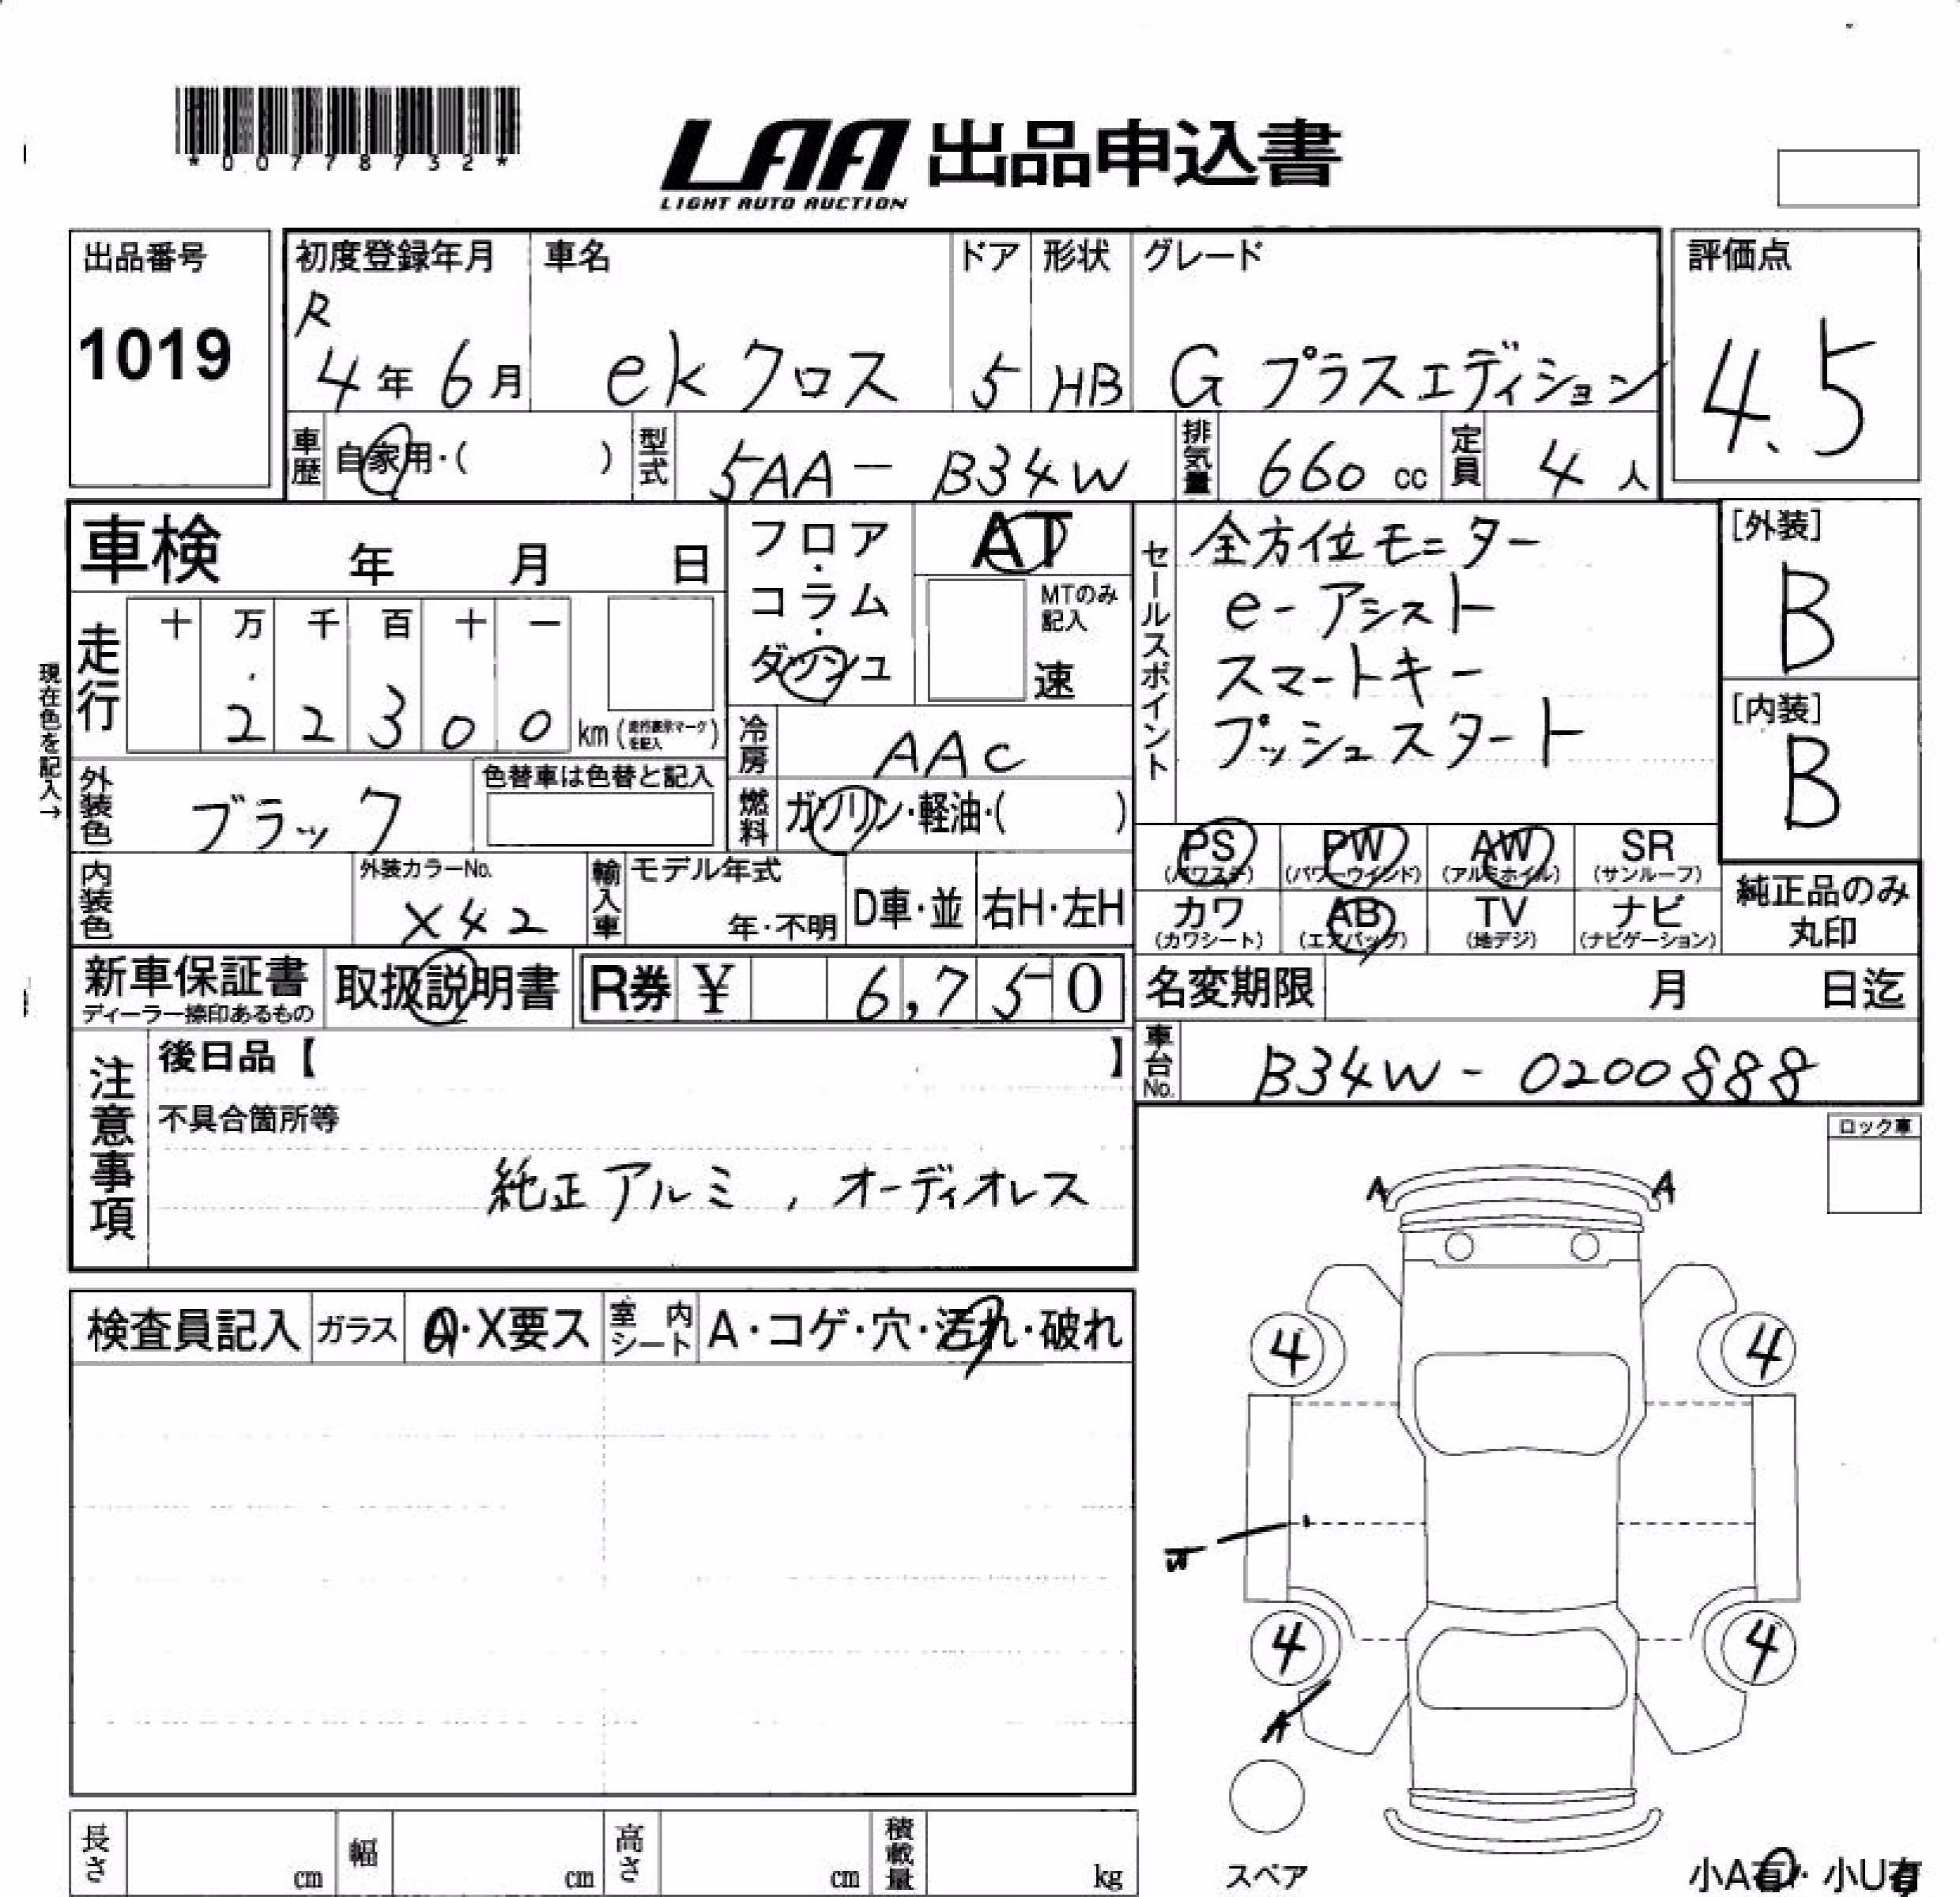 *00778732*
LAA 出品申込書
LIGHT AUTO AUCTION
出品番号
1019
初度登録年月
R
4年6月
車名
ekクロス
ドア
5
形状
HB
グレード
Gプラスエディション
評価点
4.5
車歴
自家用・( )
型式
5AA-B34W
排気量
660 cc
定員
4人
車検 年 月 日
現在色を記入→
走行
十 万 千 百 十 一
2 2 3 0 0 km(走行表示マークを記入)
フロア・コラム・ダッシュ
AT
MTのみ記入
速
冷房
AAC
燃料
ガソリン・軽油・( )
セールスポイント
全方位モニター
e-アシスト
スマートキー
プッシュスタート
[外装]
B
[内装]
B
外装色
ブラック
色替車は色替と記入
内装色
外装カラーNo.
X42
輸入車
モデル年式
年・不明
D車・並
右H・左H
PS
(パワステ)
PW
(パワーウインド)
AW
(アルミホイル)
SR
(サンルーフ)
カワ
(カワシート)
AB
(エアバッグ)
TV
(地デジ)
ナビ
(ナビゲーション)
純正品のみ
丸印
新車保証書
ディーラー捺印あるもの
取扱説明書
R券 ¥ 6,750
名変期限 月 日迄
車台No.
B34W-0200888
注意事項
後日品【 】
不具合箇所等
純正アルミ，オーディオレス
ロック車
A A
検査員記入
ガラス
A・X要ス
室内シート
A・コゲ・穴・汚れ・破れ
4 4
4 4
A
スペア
長さ cm
幅 cm
高さ cm
積載量 kg
小A有・小U有